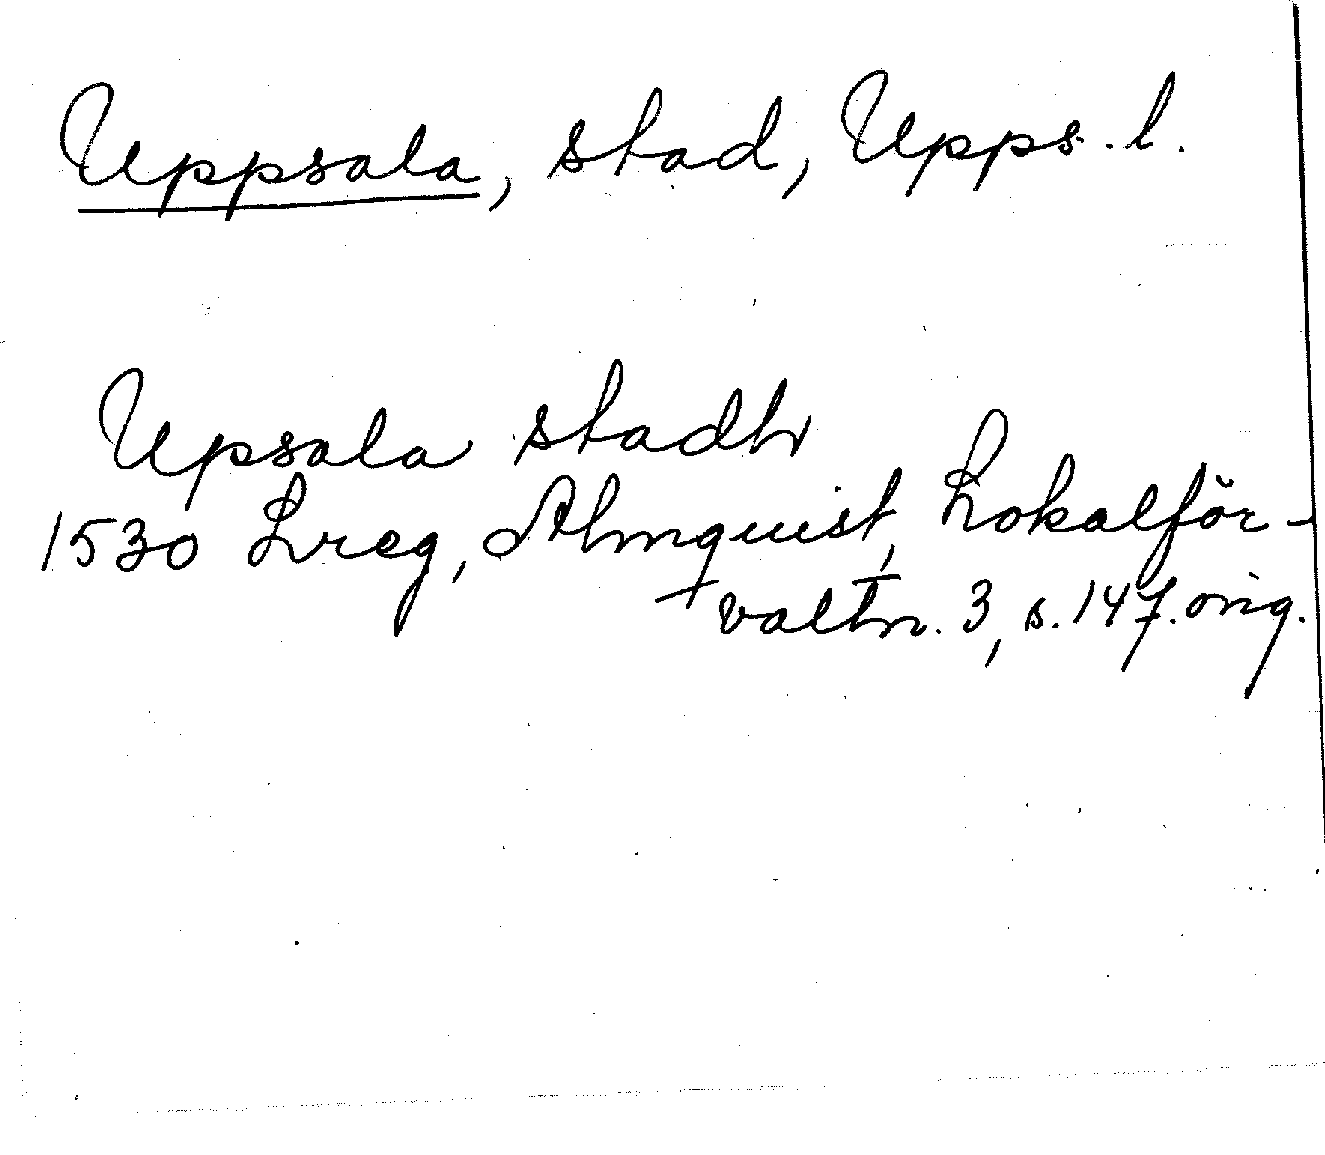 Uppsala, stad, Upps. l.
Upsala stadh
1530 Lreg, Almquist, Lokalför-
+ valtn. 3, s. 147. orig.